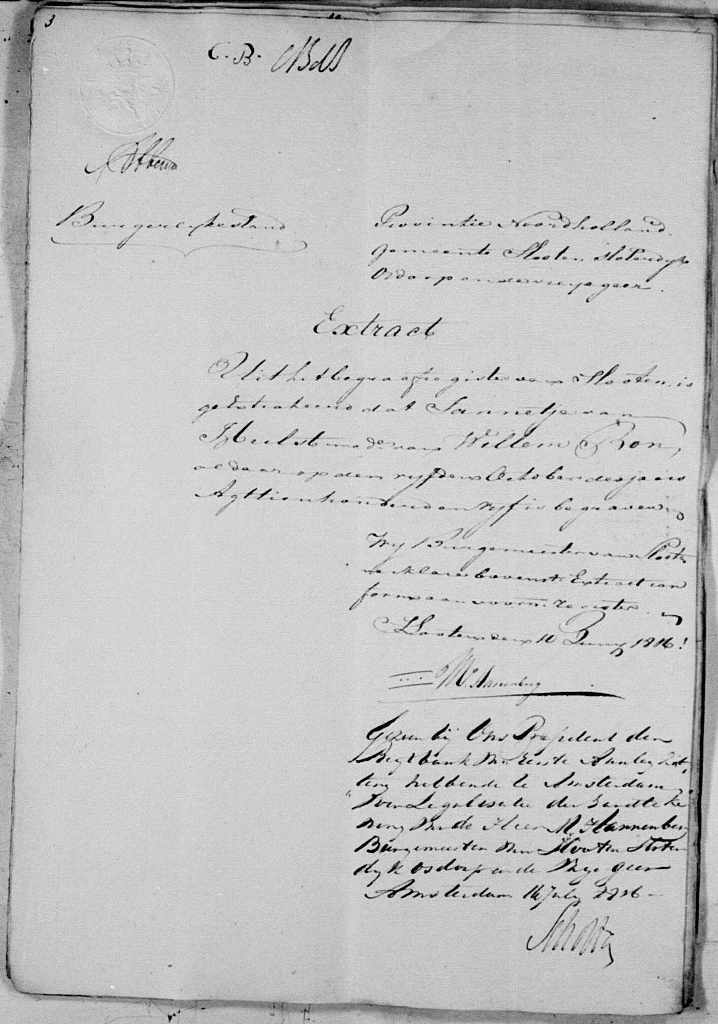 3
C. B.
Burgerlykestand
Provintie Noordholland
gemeente Slooten Sloterdyk
Osdorp en de vrye geer.
Extract
Uit het begraafregister van Slooten is
geëxtraheerd dat Jannetje van
Hulst wede. van Willem Ron,
aldaar op den vyfden October des jaars
Agttienhonderd en vyf is begraven
Wy Burgemeester van Sloten
verklare bovenst. Extract con
form aan voorn. register.
Slooten den 10 Juny 1816!
Gezien bij Ons President der
Regtbank van Eerste Aanleg Zit
ting hebbende te Amsterdam
voor Legalisatie der handteke
ning van de Heer M. Hannenberg
Burgemeester van Slooten Sloter
dyk Osdorp en de Vrye geer
Amsterdam 14 July 1816